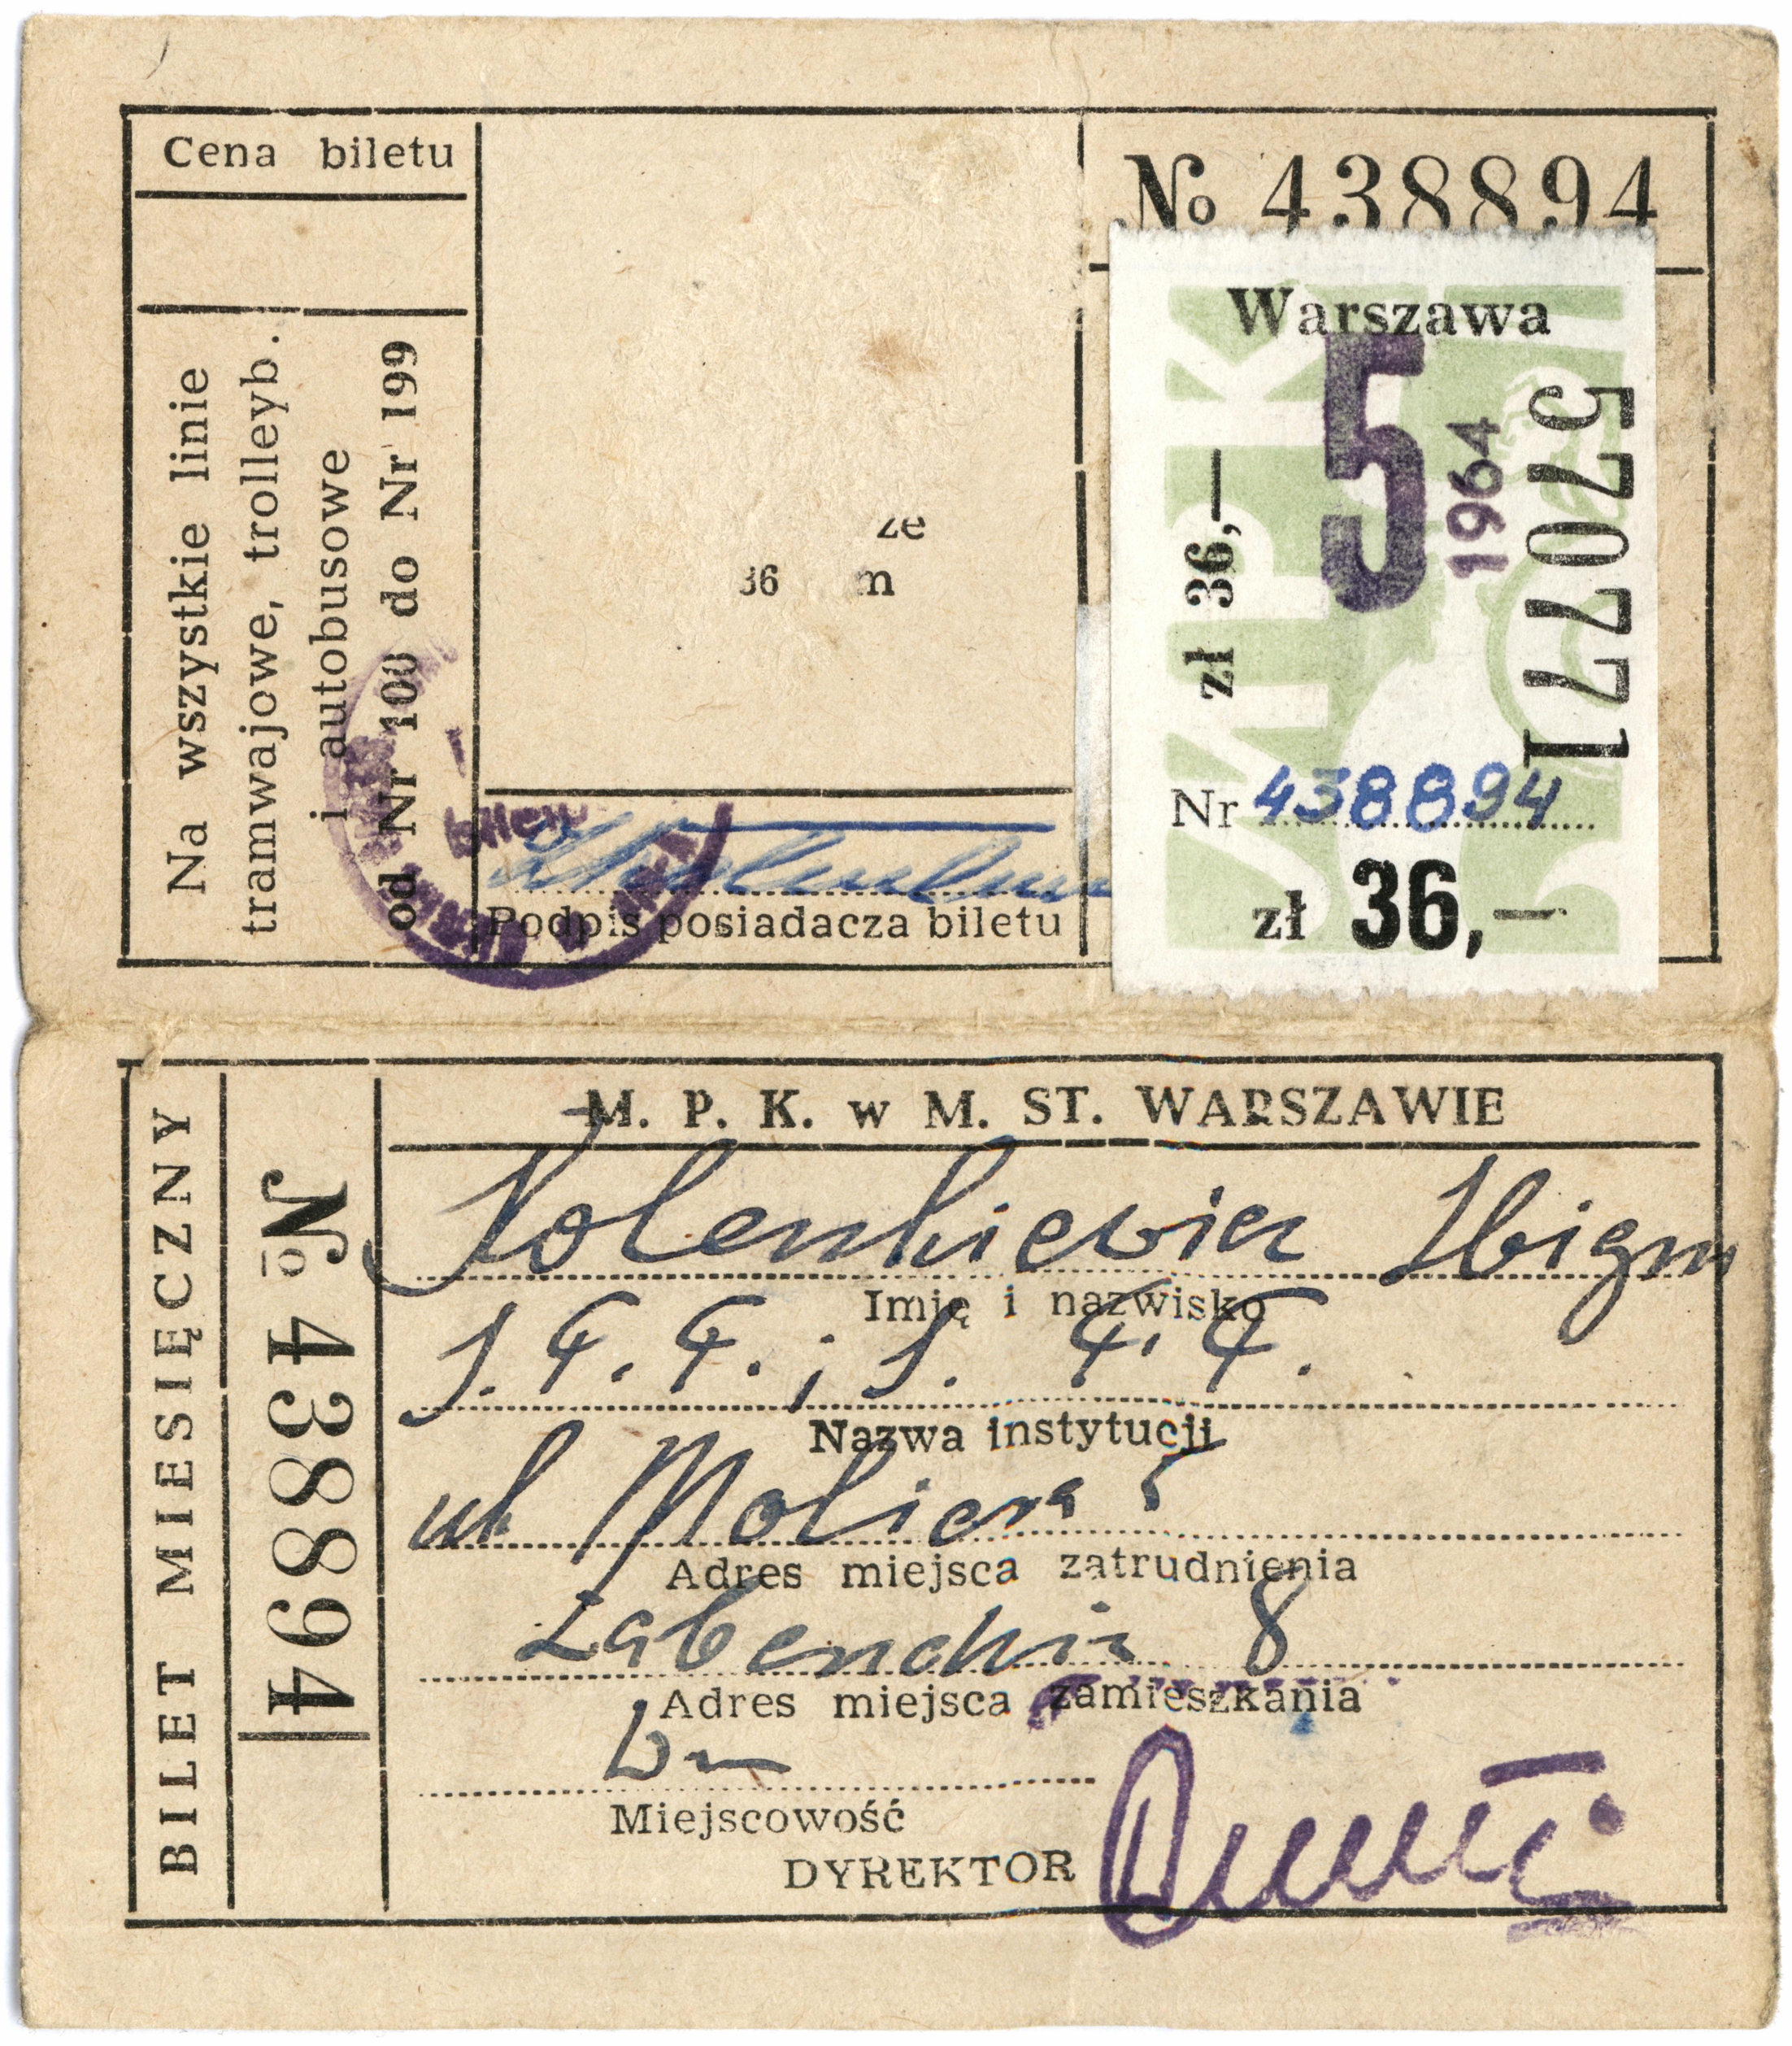 Cena biletu
Na wszystkie linie
tramwajowe, trolleyb.
i autobusowe
od Nr 100 do Nr 199
ze
36 m
Podpis posiadacza biletu
№ 438894
Warszawa
5
1964
570771
zł 36,—
Nr 438894
zł 36,—
BILET MIESIĘCZNY
№ 438894
M. P. K. w M. ST. WARSZAWIE
Zbign
Imię i nazwisko
Nazwa instytucji
ul. Moliera
Adres miejsca zatrudnienia
8
Adres miejsca zamieszkania
Miejscowość
DYREKTOR